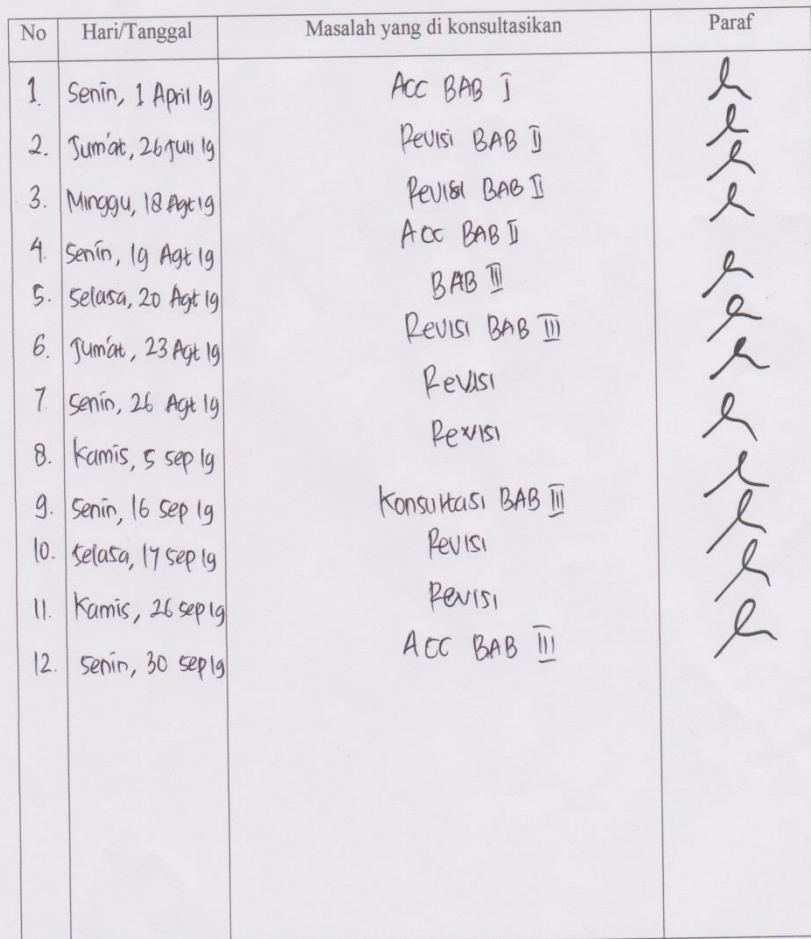 No Hari/Tanggal Masalah yang di konsultasikan Paraf
1. Senin, 1 April 19 ACC BAB I
2. Jum'at, 26 Juli 19 Revisi BAB II
3. Minggu, 18 Agt 19 Revisi BAB II
4. Senin, 19 Agt 19 ACC BAB II
5. Selasa, 20 Agt 19 BAB III
6. Jum'at, 23 Agt 19 Revisi BAB III
7. Senin, 26 Agt 19 Revisi
8. Kamis, 5 Sep 19 Revisi
9. Senin, 16 Sep 19 Konsultasi BAB III
10. Selasa, 17 Sep 19 Revisi
11. Kamis, 26 Sep 19 Revisi
12. Senin, 30 Sep 19 ACC BAB III